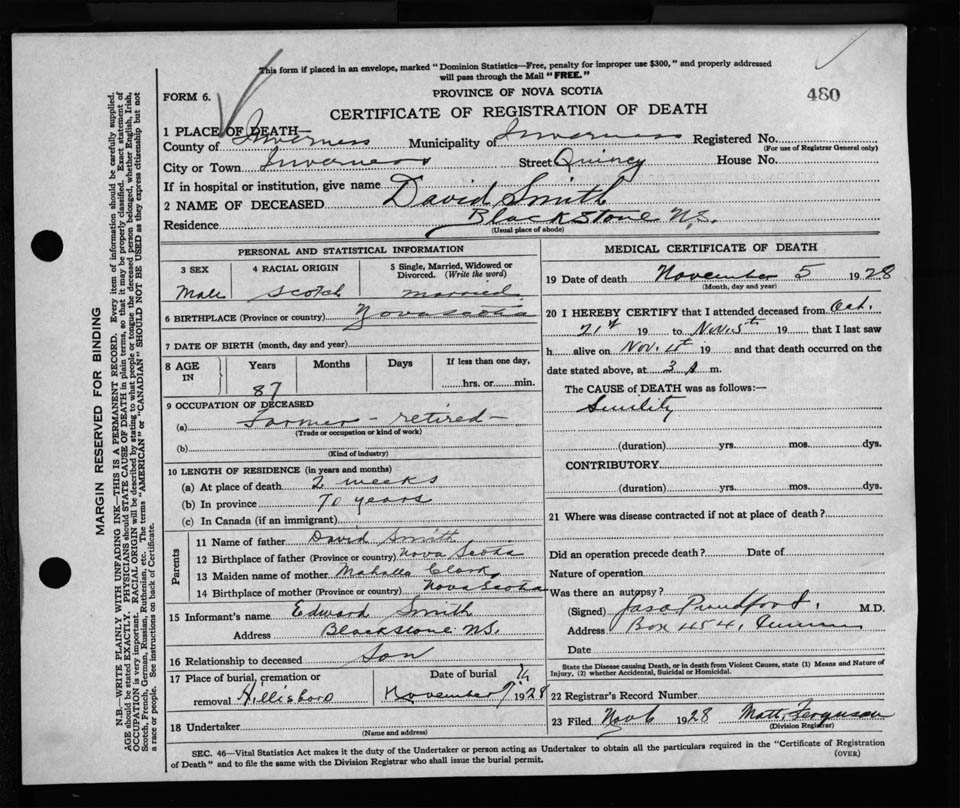 This form if placed in an envelope, marked "Dominion Statistics—Free, penalty for improper use $300," and properly addressed
will pass through the Mail "FREE."
FORM 6.
PROVINCE OF NOVA SCOTIA
480
CERTIFICATE OF REGISTRATION OF DEATH
1 PLACE OF DEATH—
County of Inverness Municipality of Inverness Registered No.
(For use of Registrar General only)
City or Town Inverness Street Quincy House No.
If in hospital or institution, give name
2 NAME OF DECEASED David Smith
Residence Blackstone N.S.
(Usual place of abode)
PERSONAL AND STATISTICAL INFORMATION
3 SEX 4 RACIAL ORIGIN 5 Single, Married, Widowed or
Divorced. (Write the word)
Male Scotch married
6 BIRTHPLACE (Province or country) Nova scotia
7 DATE OF BIRTH (month, day and year)
8 AGE IN Years Months Days If less than one day,
87 hrs. or min.
9 OCCUPATION OF DECEASED
(a) Farmer - retired -
(Trade or occupation or kind of work)
(b)
(Kind of industry)
10 LENGTH OF RESIDENCE (in years and months)
(a) At place of death 2 weeks
(b) In province 70 years
(c) In Canada (if an immigrant)
Parents
11 Name of father David Smith
12 Birthplace of father (Province or country) Nova Scotia
13 Maiden name of mother Mahalla Clark
14 Birthplace of mother (Province or country) Nova Scotia
15 Informant's name Edward Smith
Address Blackstone N.S.
16 Relationship to deceased Son
17 Place of burial, cremation or Date of burial
removal Hillisboro November 7th 1928
18 Undertaker
(Name and address)
MEDICAL CERTIFICATE OF DEATH
19 Date of death November 5 1928
(Month, day and year)
20 I HEREBY CERTIFY that I attended deceased from Oct.
21st 19 to Nov. 5th 19 that I last saw
h alive on Nov. 4th 19 and that death occurred on the
date stated above, at 3 A m.
The CAUSE of DEATH was as follows:—
Senility
(duration) yrs. mos. dys.
CONTRIBUTORY
(duration) yrs. mos. dys.
21 Where was disease contracted if not at place of death?
Did an operation precede death? Date of
Nature of operation
Was there an autopsy?
(Signed) M.D.
Address Box 454,
Date
State the Disease causing Death, or in death from Violent Causes, state (1) Means and Nature of
Injury, (2) whether Accidental, Suicidal or Homicidal.
22 Registrar's Record Number
23 Filed Nov 6 1928 Matt. Ferguson
(Division Registrar)
SEC. 46—Vital Statistics Act makes it the duty of the Undertaker or person acting as Undertaker to obtain all the particulars required in the "Certificate of Registration
of Death" and to file the same with the Division Registrar who shall issue the burial permit. (OVER)
MARGIN RESERVED FOR BINDING
N.B.—WRITE PLAINLY WITH UNFADING INK—THIS IS A PERMANENT RECORD. Every item of information should be carefully supplied.
AGE should be stated EXACTLY. PHYSICIANS should STATE CAUSE OF DEATH in plain terms, so that it may be properly classified. Exact statement of
OCCUPATION is very important. RACIAL ORIGIN will be described by stating to what people or tongue the deceased person belonged, whether English, Irish,
Scotch, French, German, Russian, Ruthenian, etc. The terms "AMERICAN" or "CANADIAN" SHOULD NOT BE USED as they express citizenship but not
a race or people. See instructions on back of Certificate.